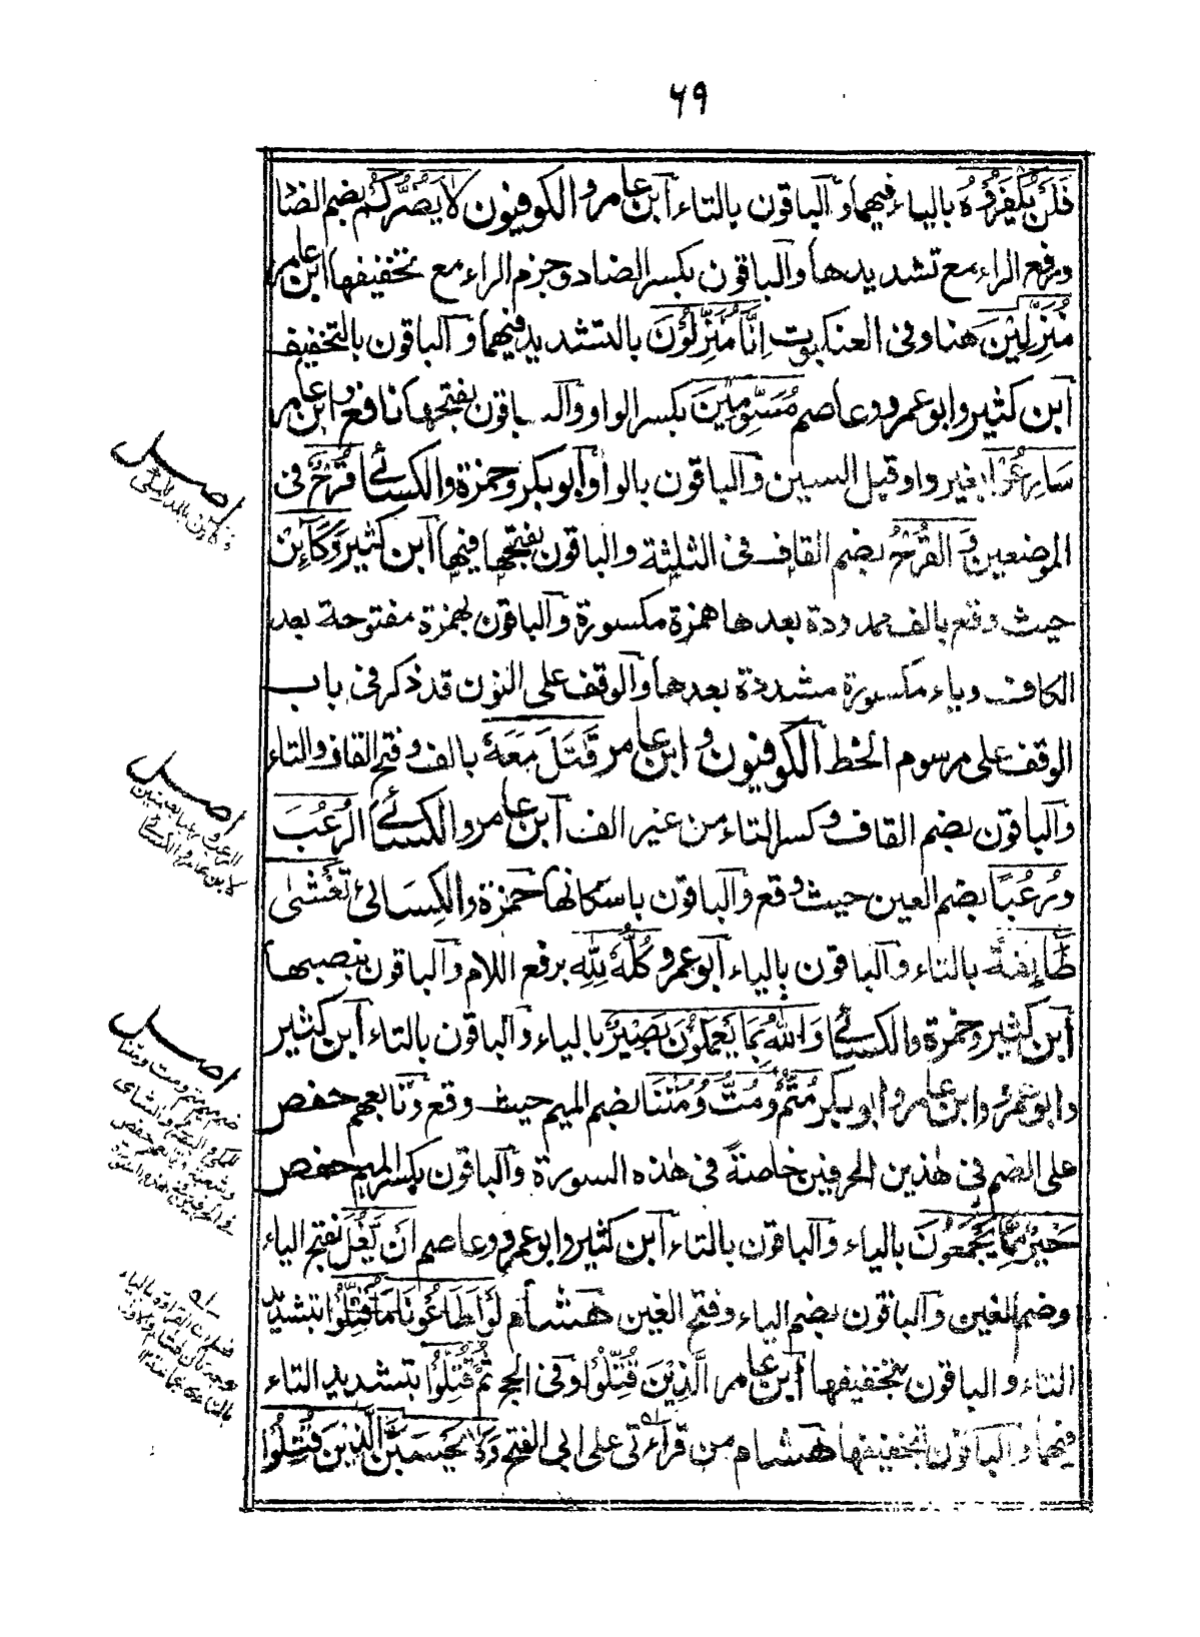 ۶۹
فَلَنْ يُكْفَرُوْهُ بالياء فيهما والباقون بالتاء ابن عامر والكوفيون لَا يَضُرُّكُمْ بضم الضا
ورفع الراء مع تشديدها والباقون بكسر الضاد وجزم الراء مع تخفيفها ابن عامر
مُنَزَّلِيْنَ هنا وفى العنكبوت اِنَّا مُنَزِّلُوْنَ بالتشديد فيهما والباقون بالتخفيف
ابن كثير وابو عمرو وعاصم مُسَوِّمِيْنَ بكسر الواو والباقون بفتحها نافع وابن عامر
سَارِعُوْا بغير واو قبل السين والباقون بالواو ابو بكر وحمزة والكسائى قُرْحٌ فى
الموضعين و الْقُرْحُ بضم القاف فى الثلثة والباقون بفتحها فيها ابن كثير وَكَآئِنْ
حيث وقع بالف ممدودة بعدها همزة مكسورة والباقون بهمزة مفتوحة بعد
الكاف وياء مكسورة مشددة بعدها والوقف على النون قد ذكر فى باب
الوقف على مرسوم الخط الكوفيون وابن عامر قٰتَلَ مَعَهٗ بالف وفتح القاف والتاء
والباقون بضم القاف وكسر التاء من غير الف ابن عامر والكسائى الرُّعُبَ
ورُعُبًا بضم العين حيث وقع والباقون باسكانها حمزة والكسائى تَغْشٰى
طَآئِفَةً بالتاء والباقون بالياء ابو عمرو كُلُّهٗ لِلّٰهِ برفع اللام والباقون بنصبها
ابن كثير وحمزة والكسائى وَاللّٰهُ بِمَا يَعْمَلُوْنَ بَصِيْرٌ بالياء والباقون بالتاء ابن كثير
وابو عمرو وابن عامر وابو بكر مُتُّمْ وَمُتُّ وَمُتْنَا بضم الميم حيث وقع وتابعهم حفص
على الضم فى هذين الحرفين خاصةً فى هذه السورة والباقون بكسر الميم حفص
خَيْرٌ مِّمَّا يَجْمَعُوْنَ بالياء والباقون بالتاء ابن كثير وابو عمرو وعاصم اَنْ يَّغُلَّ بفتح الياء
وضم الغين والباقون بضم الياء وفتح الغين هشام لَوْ اَطَاعُوْنَا مَا قُتِّلُوْا بتشديد
التاء والباقون بتخفيفها ابن عامر الَّذِيْنَ قُتِّلُوْا وفى الحج ثُمَّ قُتِّلُوْا بتشديد التاء
فيهما والباقون بتخفيفها هشام من قراءتى على ابى الفتح وَلَا يَحْسَبَنَّ الَّذِيْنَ قُتِلُوْا
اصل
اصل
اصل